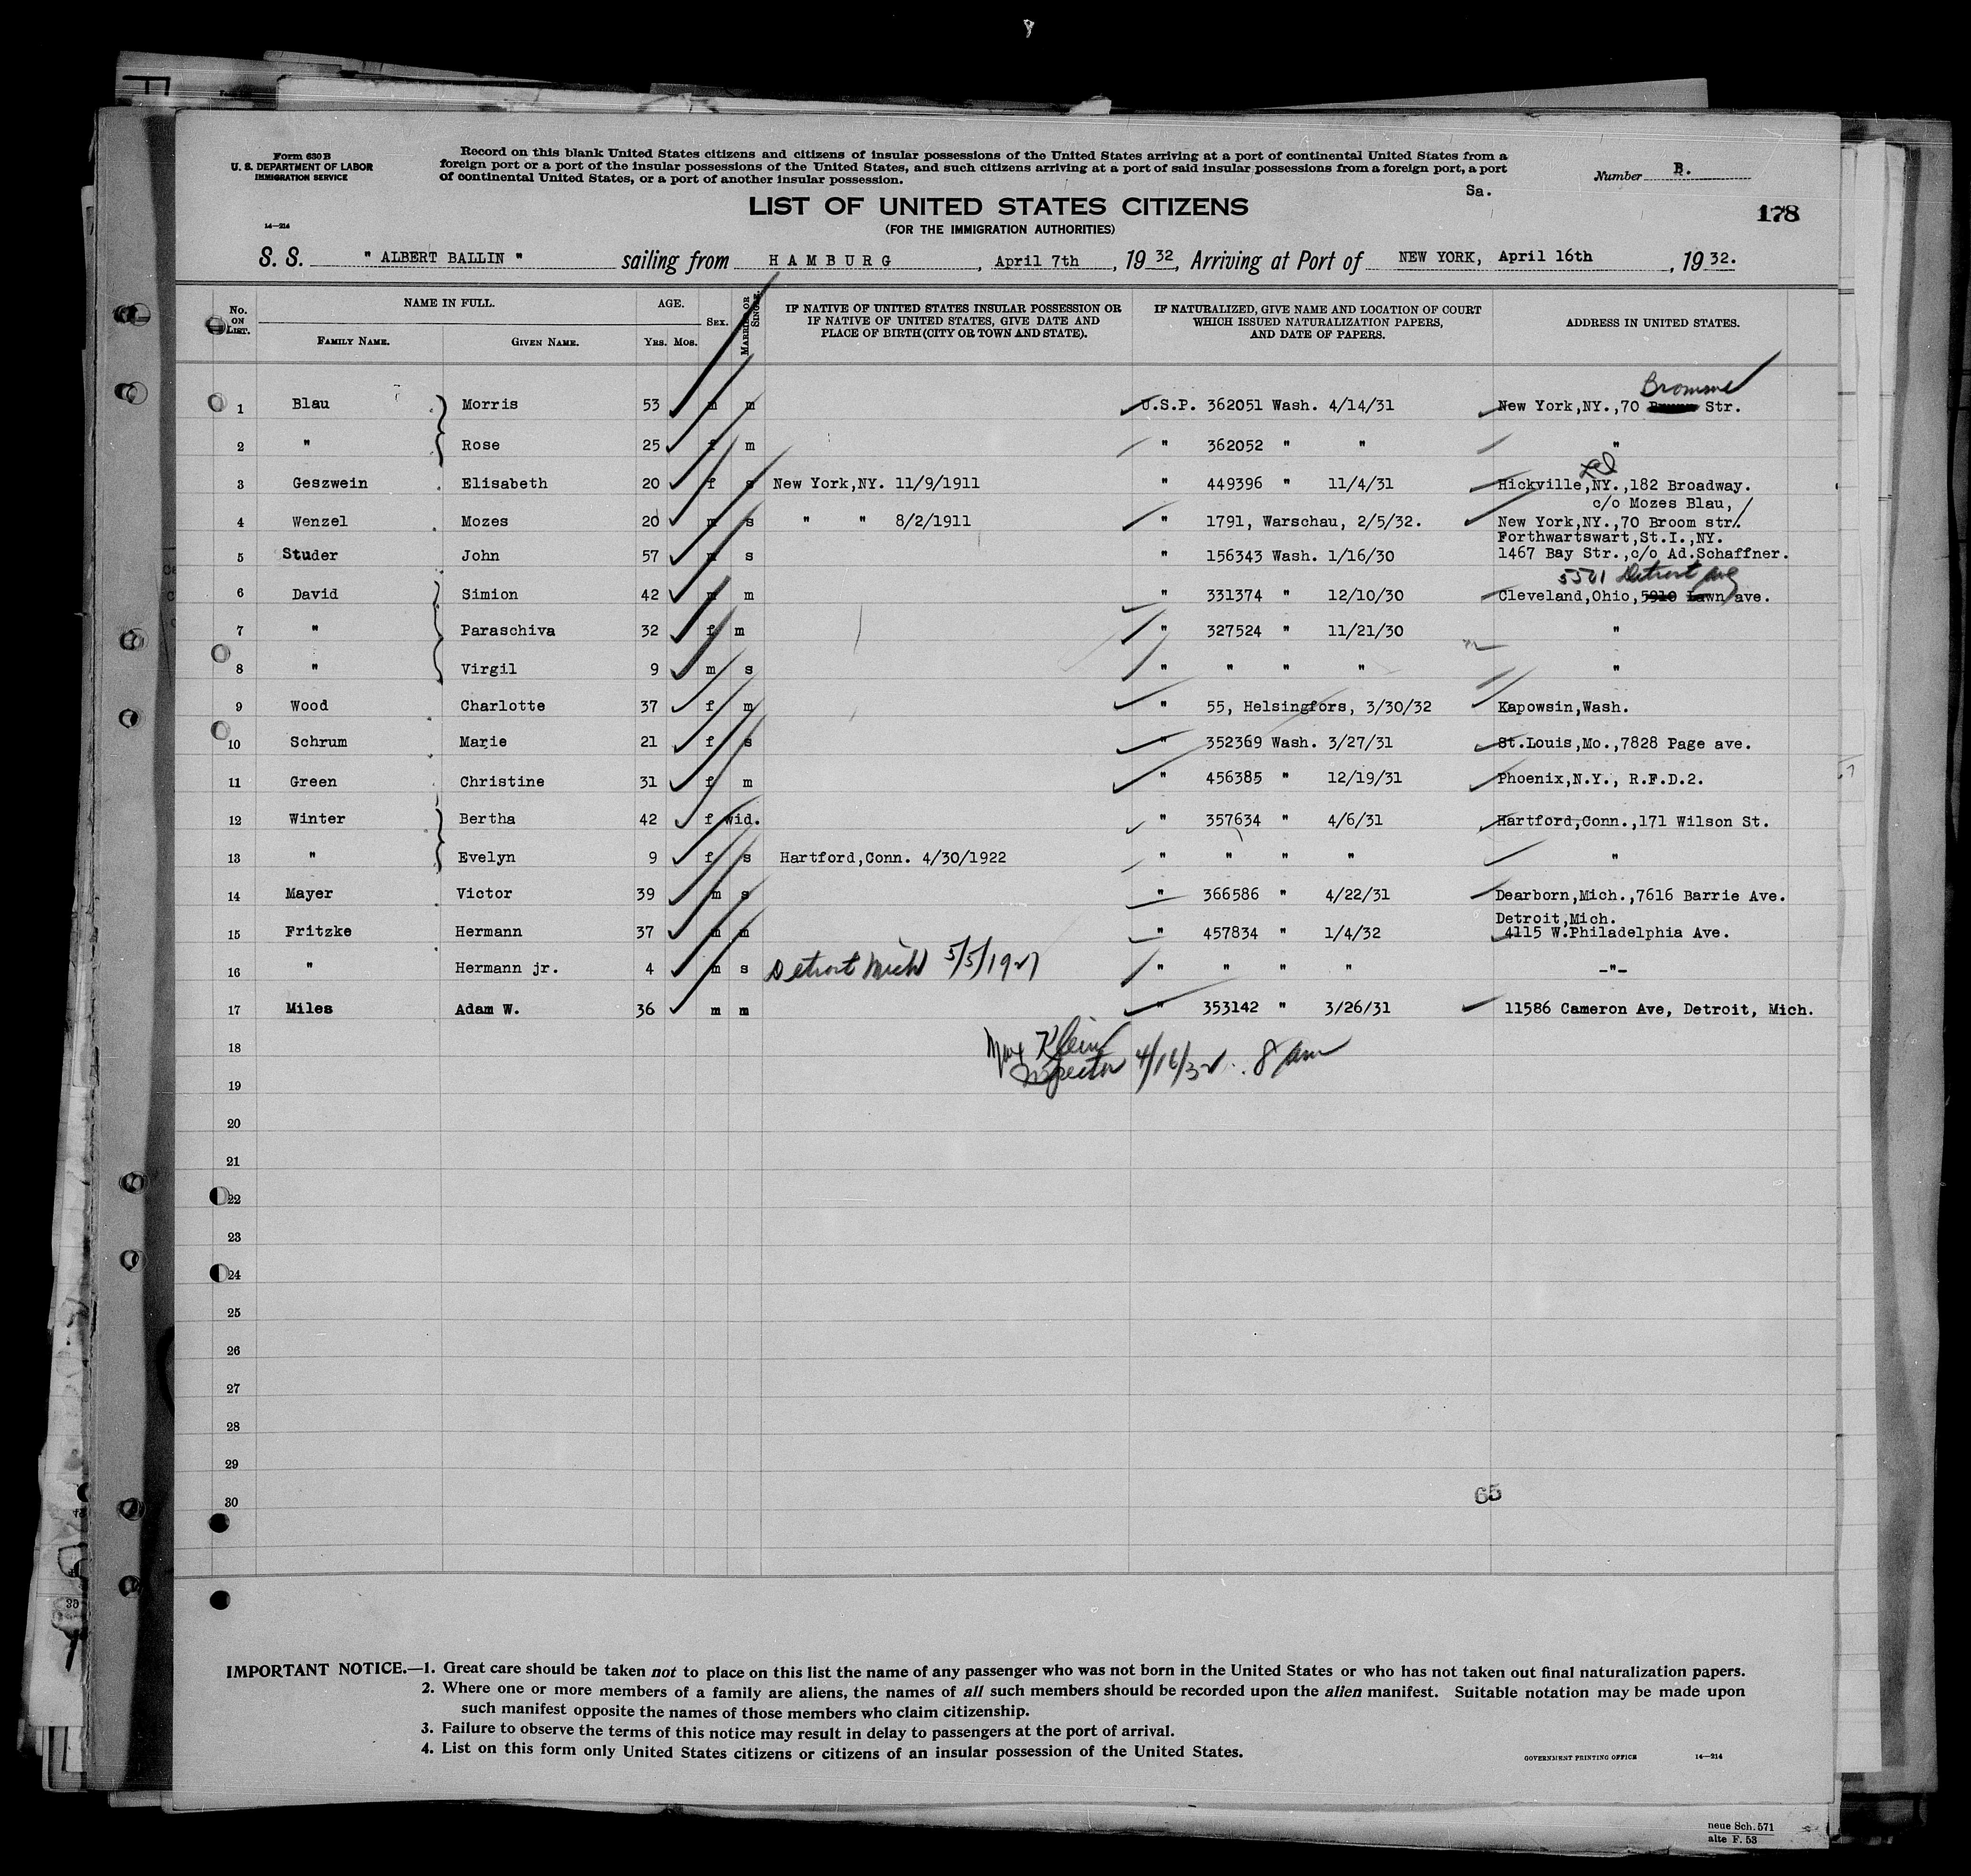 Form 630 B
U. S. DEPARTMENT OF LABOR
IMMIGRATION SERVICE
14—214
Record on this blank United States citizens and citizens of insular possessions of the United States arriving at a port of continental United States from a
foreign port or a port of the insular possessions of the United States, and such citizens arriving at a port of said insular possessions from a foreign port, a port
of continental United States, or a port of another insular possession.
Number B.
Sa.
178
LIST OF UNITED STATES CITIZENS
(FOR THE IMMIGRATION AUTHORITIES)
S. S. " ALBERT BALLIN " sailing from HAMBURG, April 7th, 1932, Arriving at Port of NEW YORK, April 16th, 1932.
No. ON LIST.
NAME IN FULL.
FAMILY NAME. GIVEN NAME.
AGE.
YRS. MOS.
SEX.
MARRIED OR SINGLE.
IF NATIVE OF UNITED STATES INSULAR POSSESSION OR
IF NATIVE OF UNITED STATES, GIVE DATE AND
PLACE OF BIRTH (CITY OR TOWN AND STATE).
IF NATURALIZED, GIVE NAME AND LOCATION OF COURT
WHICH ISSUED NATURALIZATION PAPERS,
AND DATE OF PAPERS.
ADDRESS IN UNITED STATES.
Bromme
1 Blau Morris 53 m m U.S.P. 362051 Wash. 4/14/31 New York,NY.,70 Str.
2 " Rose 25 f m " 362052 " " "
3 Geszwein Elisabeth 20 f s New York,NY. 11/9/1911 " 449396 " 11/4/31 Hickville,NY.,182 Broadway.
c/o Mozes Blau,
4 Wenzel Mozes 20 m s " " 8/2/1911 " 1791, Warschau, 2/5/32. New York,NY.,70 Broom str.
Forthwartswart,St.I.,NY.
5 Studer John 57 m s " 156343 Wash. 1/16/30 1467 Bay Str.,c/o Ad.Schaffner.
5501 Detroit ave
6 David Simion 42 m m " 331374 " 12/10/30 Cleveland,Ohio,5910 Lawn ave.
7 " Paraschiva 32 f m " 327524 " 11/21/30 "
8 " Virgil 9 m s " " " " "
9 Wood Charlotte 37 f m " 55, Helsingfors, 3/30/32 Kapowsin,Wash.
10 Schrum Marie 21 f s " 352369 Wash. 3/27/31 St.Louis,Mo.,7828 Page ave.
11 Green Christine 31 f m " 456385 " 12/19/31 Phoenix,N.Y., R.F.D.2.
12 Winter Bertha 42 f wid. " 357634 " 4/6/31 Hartford,Conn.,171 Wilson St.
13 " Evelyn 9 f s Hartford,Conn. 4/30/1922 " " " " "
14 Mayer Victor 39 m s " 366586 " 4/22/31 Dearborn,Mich.,7616 Barrie Ave.
Detroit,Mich.
15 Fritzke Hermann 37 m m " 457834 " 1/4/32 4115 W.Philadelphia Ave.
16 " Hermann jr. 4 m s Detroit Mich 5/5/1927 " " " " -"-
17 Miles Adam W. 36 m m " 353142 " 3/26/31 11586 Cameron Ave, Detroit, Mich.
18 Max Klein
Inspector 4/16/32. 8 am
19
20
21
22
23
24
25
26
27
28
29
30
65
IMPORTANT NOTICE.—1. Great care should be taken not to place on this list the name of any passenger who was not born in the United States or who has not taken out final naturalization papers.
2. Where one or more members of a family are aliens, the names of all such members should be recorded upon the alien manifest. Suitable notation may be made upon
such manifest opposite the names of those members who claim citizenship.
3. Failure to observe the terms of this notice may result in delay to passengers at the port of arrival.
4. List on this form only United States citizens or citizens of an insular possession of the United States.
GOVERNMENT PRINTING OFFICE 14—214
neue Sch. 571
alte F. 53